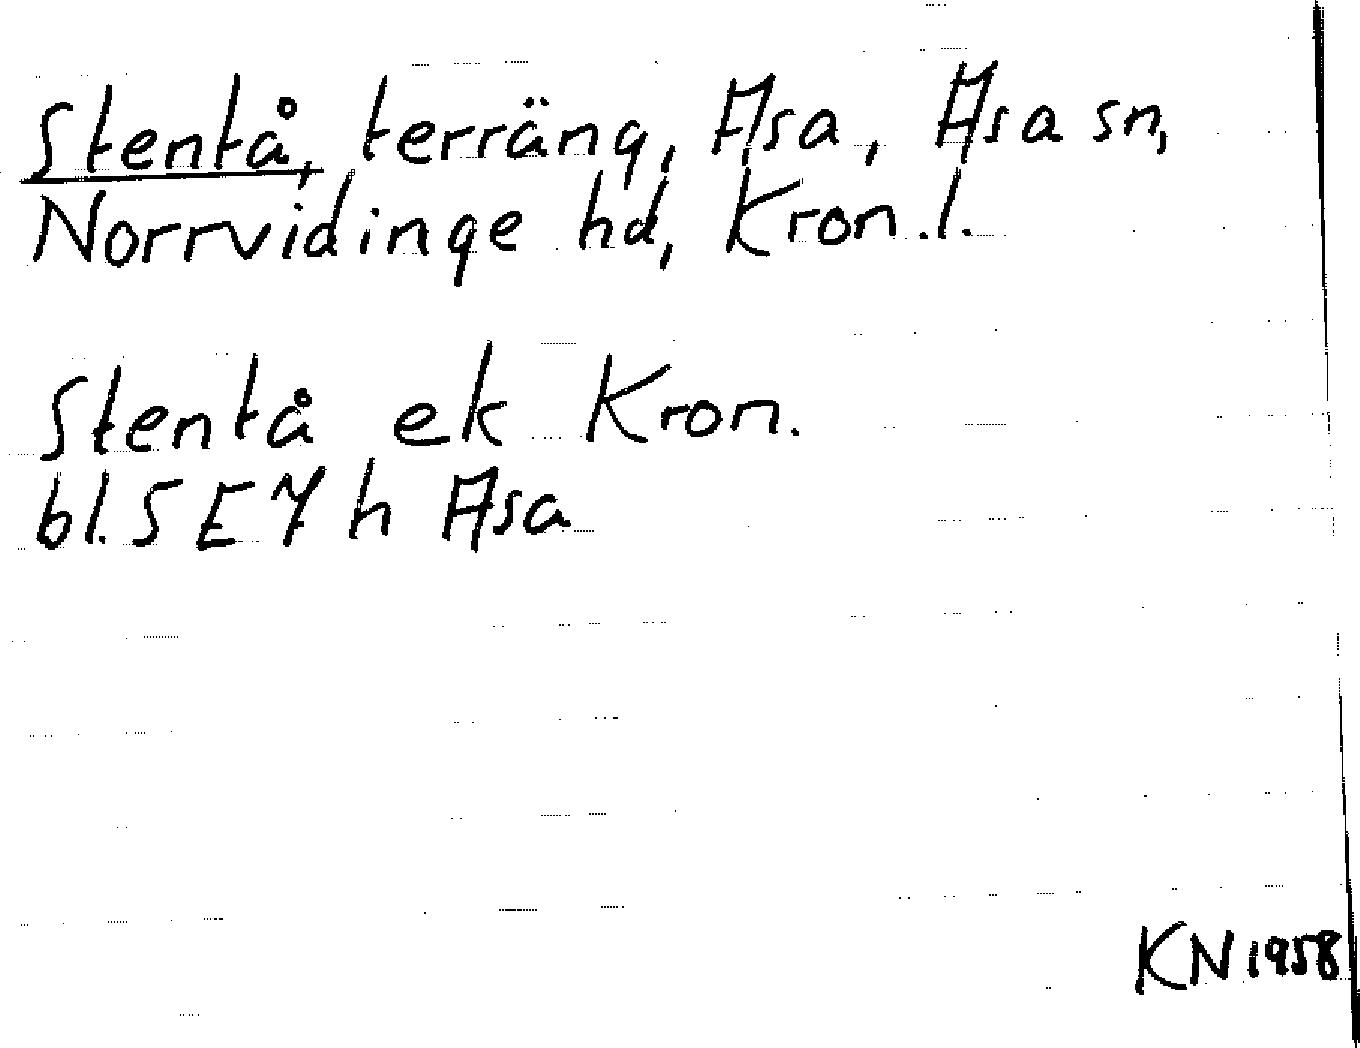 Stentå, terräng, Asa, Asa sn,
Norrvidinge hd, Kron.l.
Stentå ek Kron.
bl. 5 E 7 h Asa
KN 1958